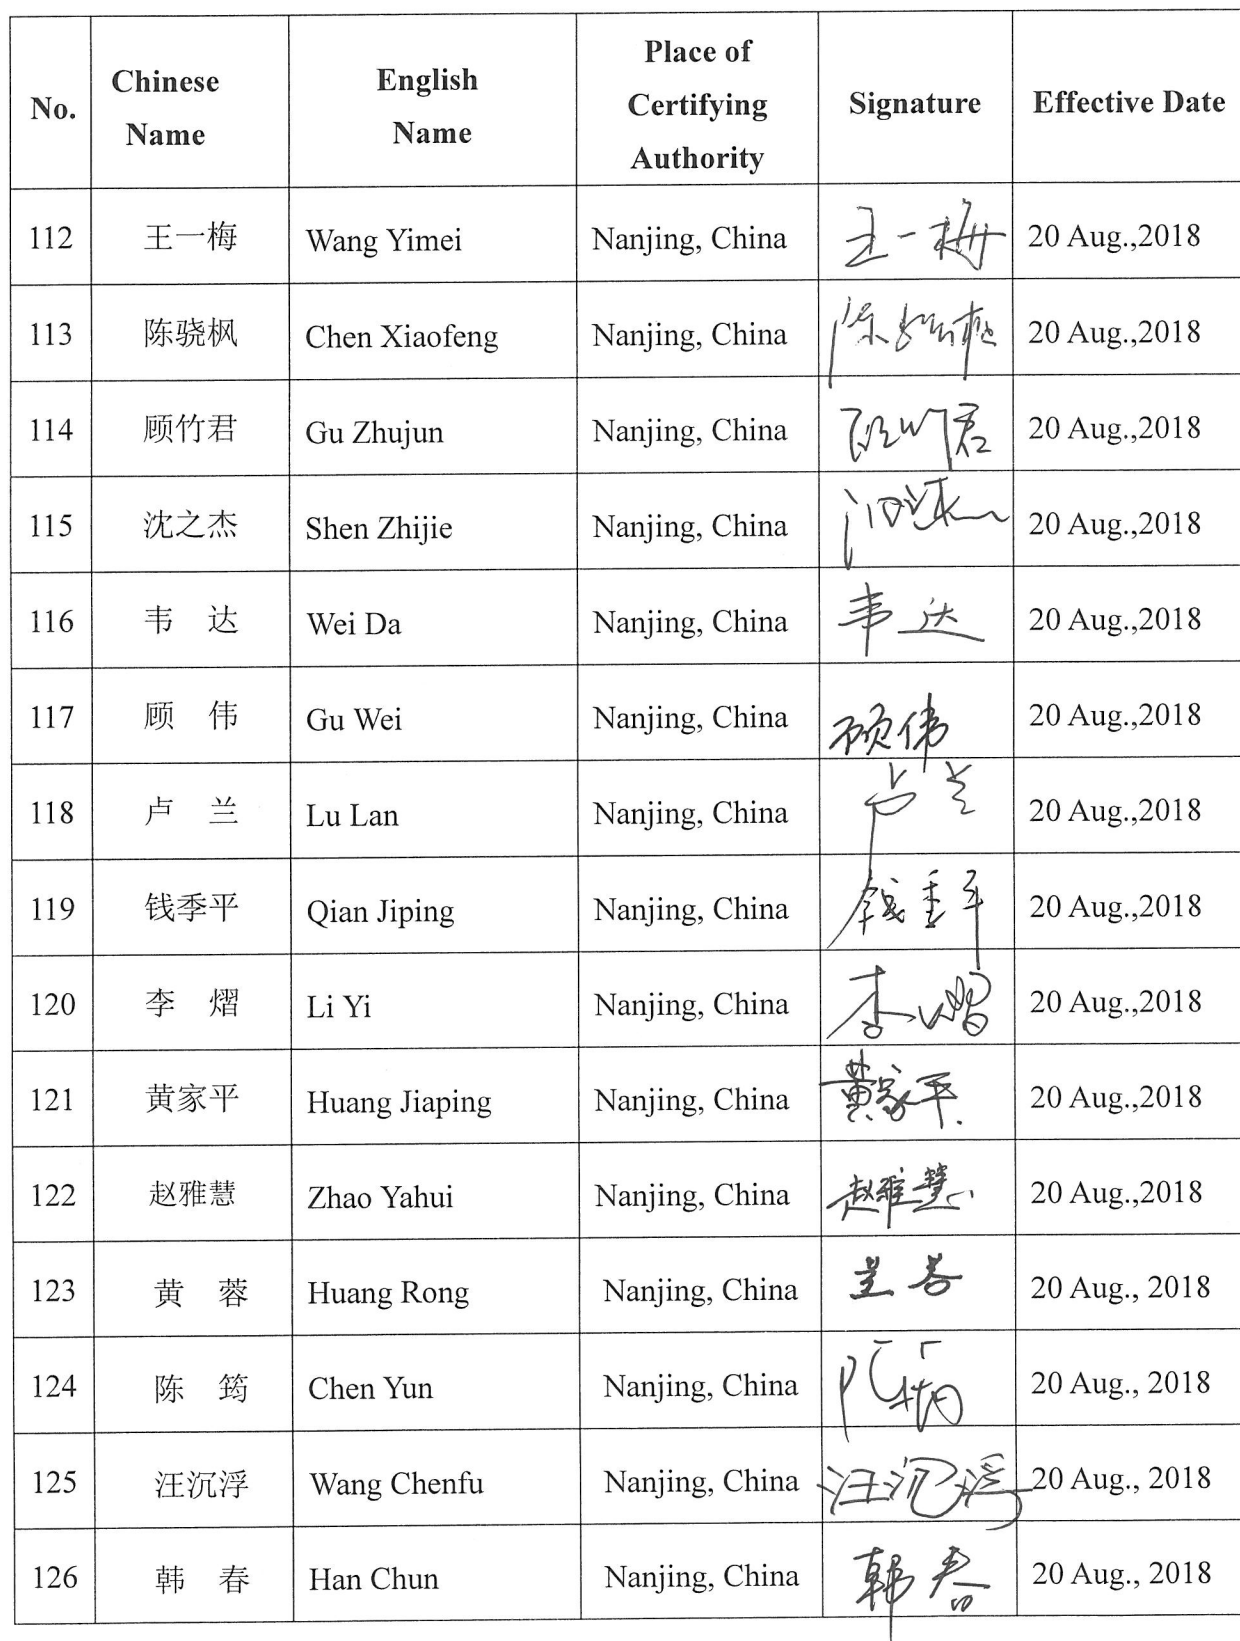 No. Chinese Name English Name Place of Certifying Authority Signature Effective Date
112 王一梅 Wang Yimei Nanjing, China 王一梅 20 Aug.,2018
113 陈骁枫 Chen Xiaofeng Nanjing, China 陈骁枫 20 Aug.,2018
114 顾竹君 Gu Zhujun Nanjing, China 顾竹君 20 Aug.,2018
115 沈之杰 Shen Zhijie Nanjing, China 20 Aug.,2018
116 韦 达 Wei Da Nanjing, China 韦达 20 Aug.,2018
117 顾 伟 Gu Wei Nanjing, China 顾伟 20 Aug.,2018
118 卢 兰 Lu Lan Nanjing, China 卢兰 20 Aug.,2018
119 钱季平 Qian Jiping Nanjing, China 钱季平 20 Aug.,2018
120 李 熠 Li Yi Nanjing, China 李熠 20 Aug.,2018
121 黄家平 Huang Jiaping Nanjing, China 黄家平 20 Aug.,2018
122 赵雅慧 Zhao Yahui Nanjing, China 赵雅慧 20 Aug.,2018
123 黄 蓉 Huang Rong Nanjing, China 黄蓉 20 Aug., 2018
124 陈 筠 Chen Yun Nanjing, China 20 Aug., 2018
125 汪沉浮 Wang Chenfu Nanjing, China 汪沉浮 20 Aug., 2018
126 韩 春 Han Chun Nanjing, China 韩春 20 Aug., 2018